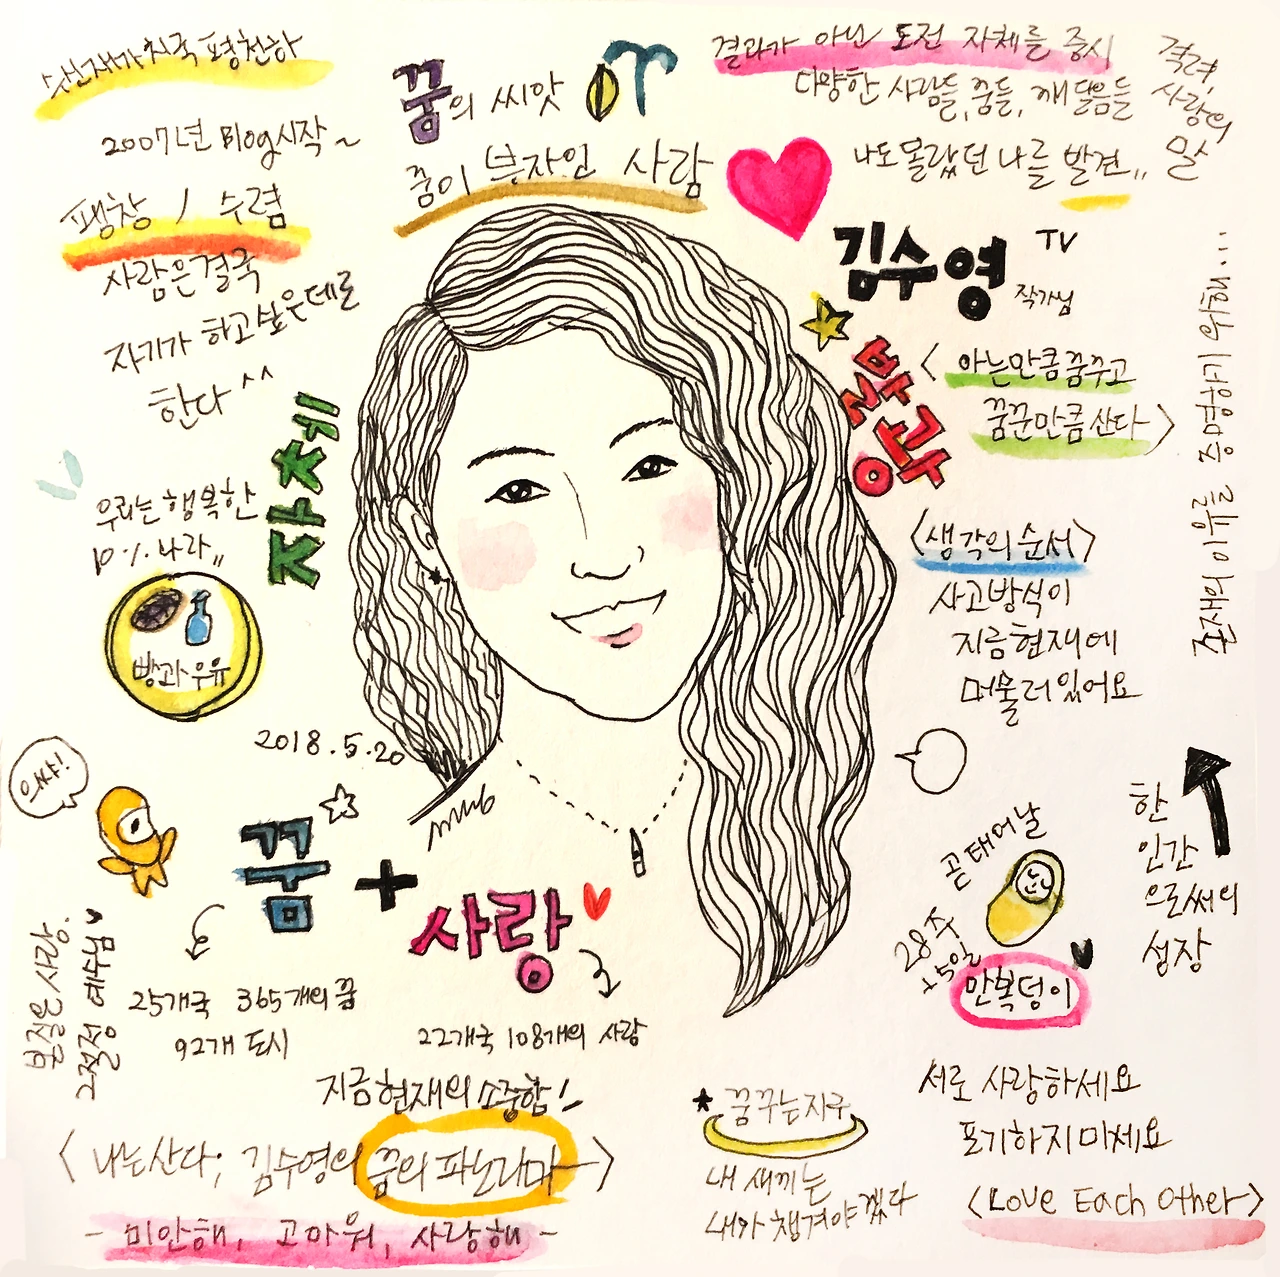 수신제가치국 평천하
2007년 Blog시작~
팽창 / 수렴
사람은 결국
자기가 하고싶은데로
한다 ^^
꿈의 씨앗
꿈이 부자인 사람
결과가 아닌 도전 자체를 중시
다양한 사람들, 꿈들, 깨달음들
나도 몰랐던 나를 발견,,
격려,
사랑의
말
김수영 TV
작가님
<아는만큼 꿈꾸고
꿈꾼만큼 산다>
존재의 이유를 증명하기 위해...
자체
우리는 행복한
10% 나라,,
빵과 우유
<생각의 순서>
사고방식이
지금 현재에
머물러 있어요
2018.5.20
으쌰!
꿈 + 사랑
25개국 365개의 꿈
92개 도시
22개국 108개의 사랑
본질은 사랑.
그 절정 예수님
곧 태어날
28주
+5일
만복덩이
한
인간
으로써의
성장
지금 현재의 소중함!
<나는 산다; 김수영의 꿈의 파노라마>
- 미안해, 고마워, 사랑해 -
꿈꾸는 지구
내 새끼는
내가 챙겨야겠다
서로 사랑하세요
포기하지 마세요
<Love Each Other>